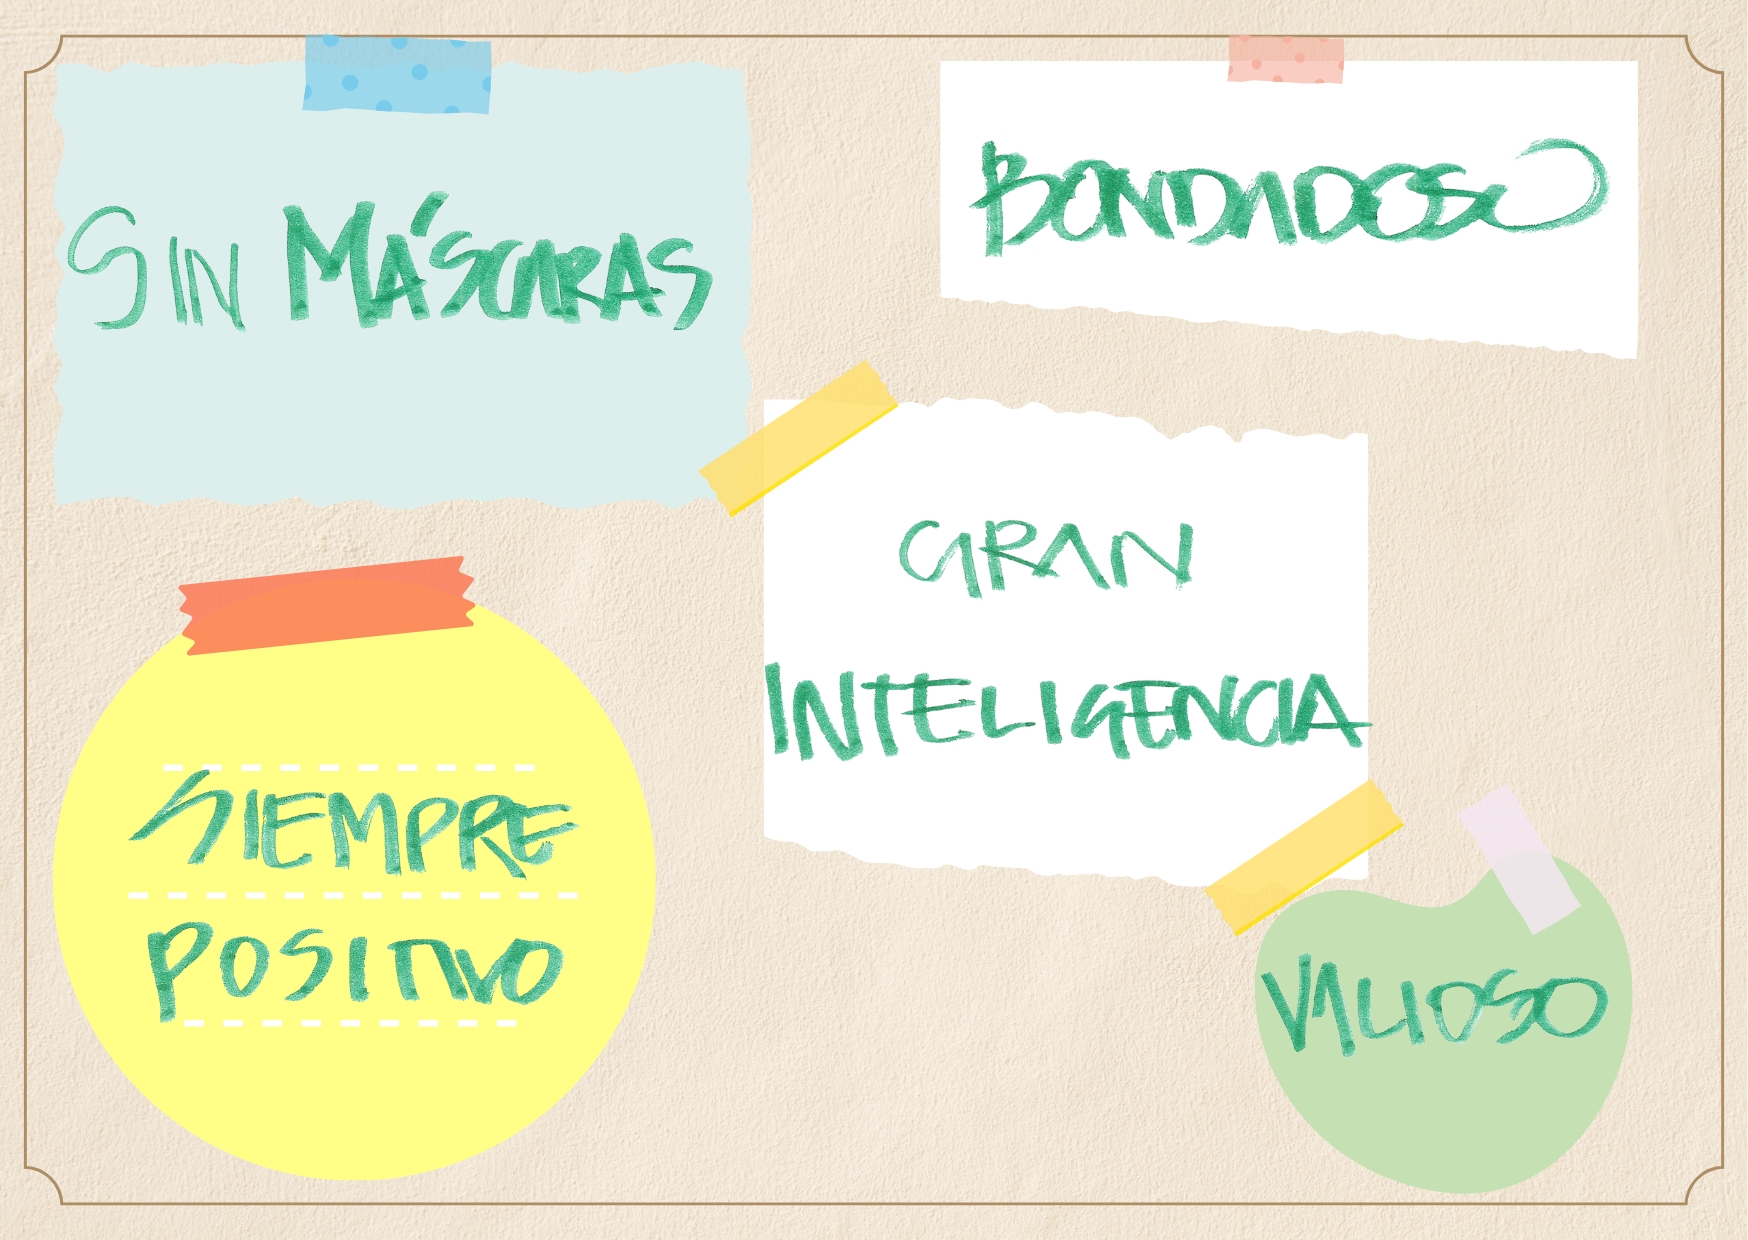 SIN MÁSCARAS
BONDADOSO
GRAN
INTELIGENCIA
SIEMPRE
POSITIVO
VALIOSO